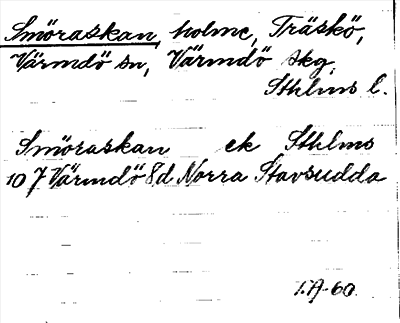 Smöraskan, holme, Träskö,
Värmdö sn, Värmdö skg,
Sthlms l.
Smöraskan ek Sthlms
10 J Värmdö 8d Norra Stavsudda
I.A-60.